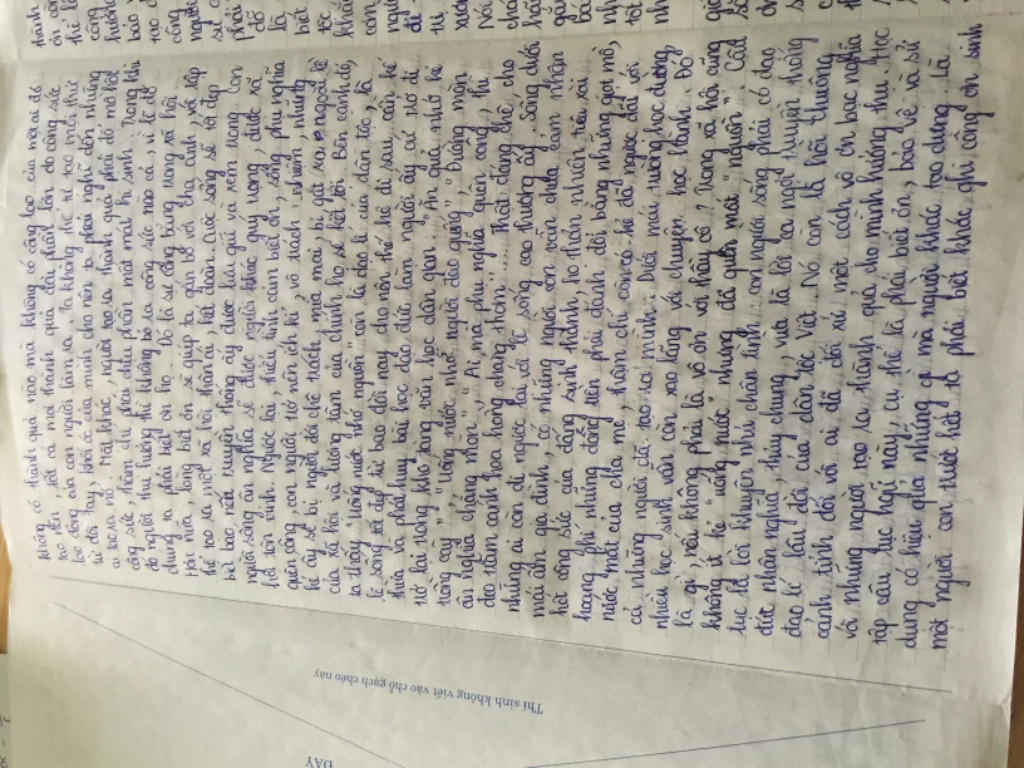 không có thành quả nào mà không có công lao của một ai đó
tạo nên, tất cả mọi thành quả đều phải lớn do công sức
lao động của con người làm ra. Ta không thể tự tạo mọi thứ
từ đôi tay, khối óc của mình cho nên ta phải nghĩ đến những
ai tạo ra nó. Mặt khác, người tạo ra thành quả phải đổ mồ hôi
công sức, thậm chí phải chịu phần mất mát, hi sinh. Trong khi
đó người thụ hưởng thì không bỏ ra công sức nào cả, vì lẽ đó
chúng ta phải biết ơn họ. Đó là sự công bằng trong xã hội.
Hơn nữa, lòng biết ơn sẽ giúp ta gắn bó với cha anh, với tập
thể tạo ra một xã hội thân ái, kết đoàn. Cuộc sống sẽ tốt đẹp
bi bao nếu truyền thống ấy được lưu giữ và xem trọng. Con
người sống ân nghĩa sẽ được người khác quý trọng, được xã
hội tôn vinh. Ngược lại, thiếu tình cảm biết ơn, sống phụ nghĩa
quên công, con người trở nên ích kỉ, vô trách nhiệm, những
kẻ ấy sẽ bị người đời chê trách, mỉa mai, bị gạt ra ngoài lề
của xã hội và lương tâm của chính họ sẽ kết tội. Bên cạnh đó,
ta thấy "Uống nước nhớ nguồn" còn là đạo lí của dân tộc, là
lẽ sống tốt đẹp từ bao đời nay cho nên thế hệ đi sau cần kế
thừa và phát huy. Bài học đạo đức làm người ấy cứ trở đi
trở lại trong kho tàng văn học dân gian. "Ăn quả nhớ kẻ
trồng cây", "Uống nước nhớ người đào giếng", "Đừng mòn
ân nghĩa chẳng mòn", "Ai mà phụ nghĩa quên công, thì
đeo trăm cánh hoa hồng chẳng thơm"..... Thật đáng chê, cho
những ai còn đi ngược lại với lẽ sống cao thượng ấy. Sống dưới
mái ấm gia đình, có những người con vẫn chưa cảm nhận
hết công sức của đấng sinh thành, họ thản nhiên tiêu xài
hoang phí những đồng tiền phải đánh đổi bằng những giọt mồ,
nước mắt của cha mẹ, thậm chí còn có kẻ đã ngược đãi với
cả những người đã tạo ra mình. Dưới mái trường học đường
nhiều học sinh vẫn còn xao lãng với chuyện học hành. Đó
là gì, nếu không phải là vô ơn với thầy cô? Trong xã hội cũng
không ít kẻ "uống nước" nhưng đã quên mất "nguồn". Câu
tục là lời khuyên nhủ chân tình, con người sống phải có đạo
đức nhân nghĩa, thủy chung, vừa là lời ca ngợi truyền thống
đạo lí lâu đời của dân tộc Việt. Nó còn là hồi chuông
cảnh tỉnh đối với ai đã đối xử một cách vô ơn bạc nghĩa
với những người tạo ra thành quả cho mình hưởng thụ. Học
tập câu tục ngữ này, cụ thể là phải biết ơn, bảo vệ và sử
dụng có hiệu quả những gì mà người khác tạo dựng. Là
một người con trước hết ta phải biết khắc ghi công ơn sinh
Thí sinh không viết vào chỗ gạch chéo này
ĐÂY